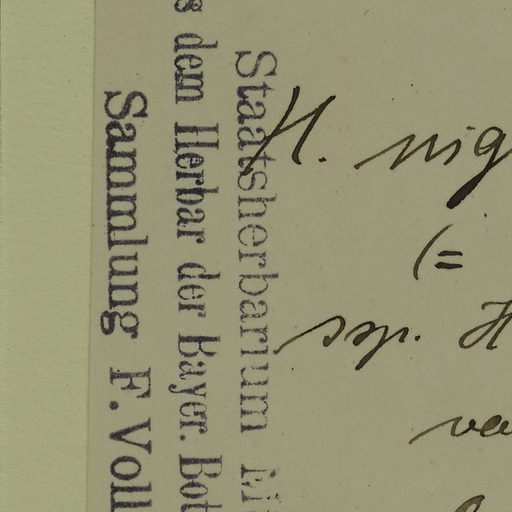 Staatsherbarium
s dem Herbar der Bayer. Bot
Sammlung F. Voll
H. nig
(=
ssp. H
va